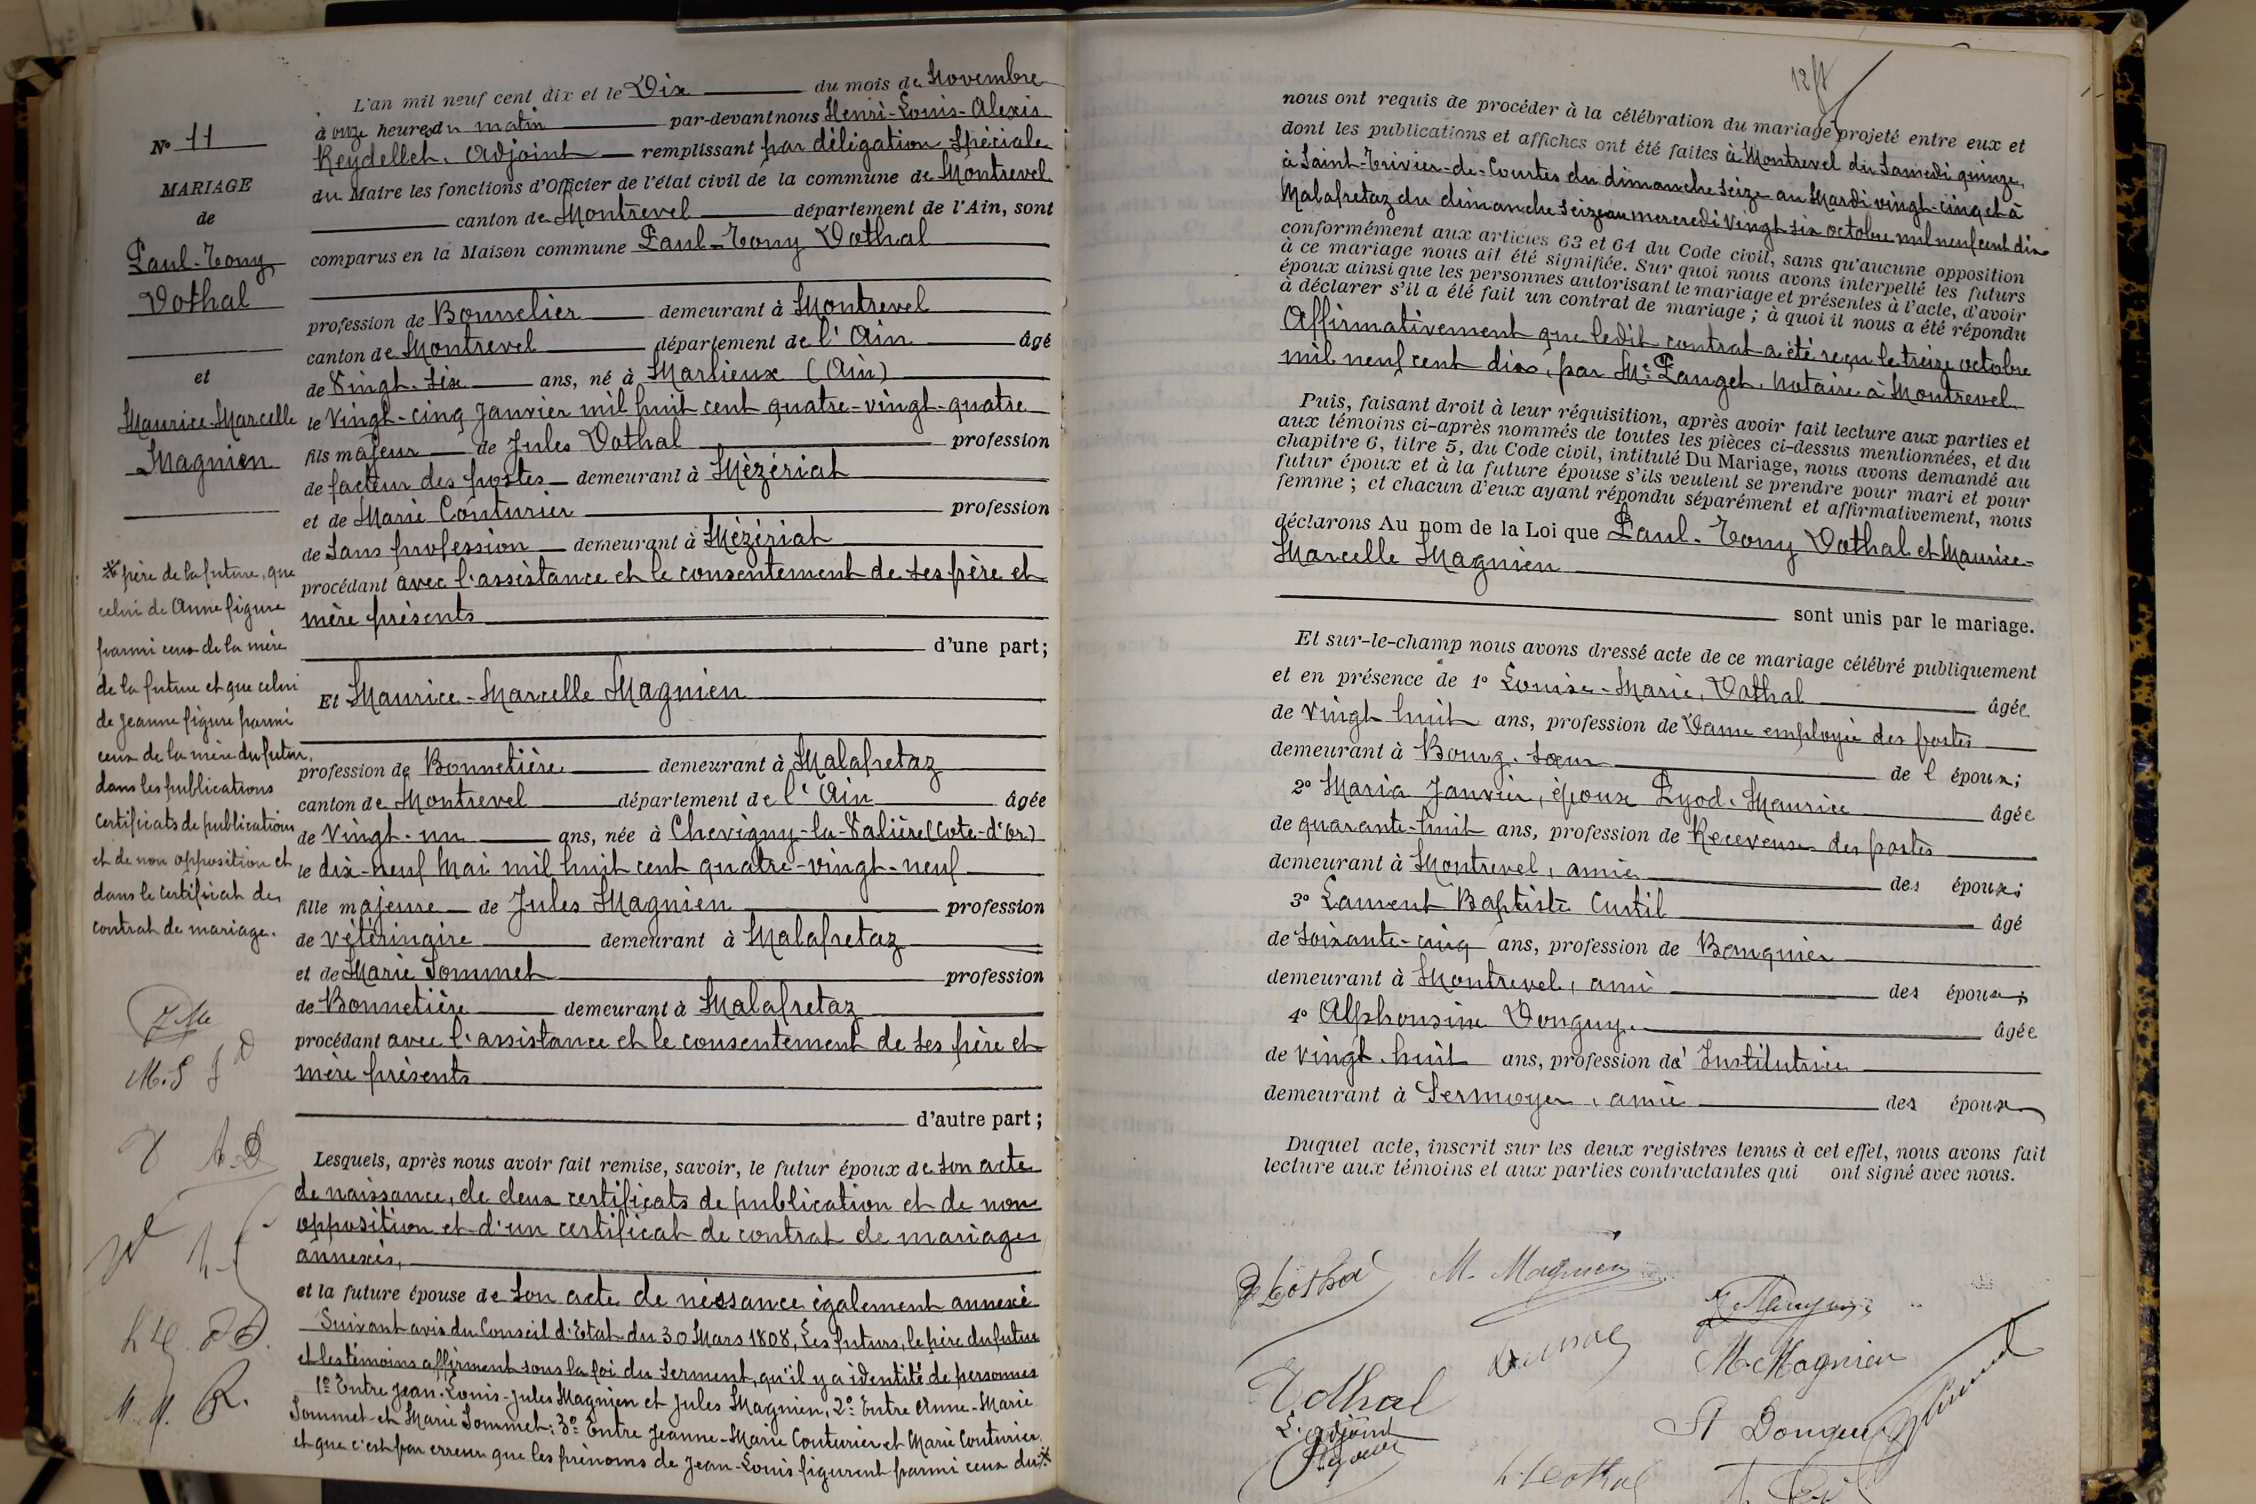 Nº 11
MARIAGE
de
Paul-Tony
Vothal
et
Maurice-Marcelle
Magnien
* père de la future, que
celui de Anne figure
parmi ceux de la mère
de la future et que celui
de Jeanne figure parmi
ceux de la mère du futur,
dans les publications
certificats de publications
et de non opposition et
dans le certificat de
contrat de mariage.
L'an mil neuf cent dix et le Dix du mois de Novembre
à onze heures du matin par-devant nous Henri-Louis-Alexis
Reydellet, Adjoint remplissant par délégation spéciale
du Maire les fonctions d'Officier de l'état civil de la commune de Montrevel
canton de Montrevel département de l'Ain, sont
comparus en la Maison commune Paul-Tony Vothal
profession de Bonnelier demeurant à Montrevel
canton de Montrevel département de l'Ain âgé
de Vingt-six ans, né à Marlieux (Ain)
le Vingt-cinq Janvier mil huit cent quatre-vingt-quatre
fils majeur de Jules Vothal profession
de facteur des postes demeurant à Mézériat
et de Marie Couturier profession
de sans profession demeurant à Mézériat
procédant avec l'assistance et le consentement de ses père et
mère présents
d'une part;
Et Maurice-Marcelle Magnien
profession de Bonnetière demeurant à Malafretaz
canton de Montrevel département de l'Ain âgée
de Vingt-un ans, née à Chevigny-la-Valière (Cote-d'Or)
le dix-neuf Mai mil huit cent quatre-vingt-neuf
fille majeure de Jules Magnien profession
de vétérinaire demeurant à Malafretaz
et de Marie Sommet profession
de Bonnetière demeurant à Malafretaz
procédant avec l'assistance et le consentement de ses père et
mère présents
d'autre part;
Lesquels, après nous avoir fait remise, savoir, le futur époux de son acte
de naissance, de deux certificats de publication et de non
opposition et d'un certificat de contrat de mariage
annexés,
et la future épouse de son acte de naissance également annexé
Suivant avis du Conseil d'Etat du 30 Mars 1808, Les futurs, le père du futur
et les témoins affirment sous la foi du serment, qu'il y a identité de personnes
1º Entre Jean-Louis-Jules Magnien et Jules Magnien; 2º Entre Anne-Marie
Sommet et Marie Sommet; 3º Entre Jeanne-Marie Couturier et Marie Couturier
et que c'est par erreur que les prénoms de Jean-Louis figurent parmi ceux du *
M.S
nous ont requis de procéder à la célébration du mariage projeté entre eux et
dont les publications et affiches ont été faites à Montrevel du Samedi quinze,
à Saint-Trivier-de-Courtes du dimanche seize au Mardi vingt-cinq et à
Malafretaz du dimanche seize au mercredi Vingt six octobre mil neuf cent dix
conformément aux articles 63 et 64 du Code civil, sans qu'aucune opposition
à ce mariage nous ait été signifiée. Sur quoi nous avons interpellé les futurs
époux ainsi que les personnes autorisant le mariage et présentes à l'acte, d'avoir
à déclarer s'il a été fait un contrat de mariage; à quoi il nous a été répondu
Affirmativement que ledit contrat a été reçu le treize octobre
mil neuf cent dix, par Me Panget, Notaire à Montrevel
Puis, faisant droit à leur réquisition, après avoir fait lecture aux parties et
aux témoins ci-après nommés de toutes les pièces ci-dessus mentionnées, et du
chapitre 6, titre 5, du Code civil, intitulé Du Mariage, nous avons demandé au
futur époux et à la future épouse s'ils veulent se prendre pour mari et pour
femme; et chacun d'eux ayant répondu séparément et affirmativement, nous
déclarons Au nom de la Loi que Paul-Tony Vothal et Maurice-
Marcelle Magnien
sont unis par le mariage.
Et sur-le-champ nous avons dressé acte de ce mariage célébré publiquement
et en présence de 1º Louise-Marie, Vothal âgée
de Vingt huit ans, profession de Dame employée des postes
demeurant à Bourg, sœur de l époux;
2º Maria Janvier, épouse Pyod, Maurice âgée
de quarante-huit ans, profession de Receveuse des postes
demeurant à Montrevel, amie des époux;
3º Laurent Baptiste Curtil âgé
de soixante-cinq ans, profession de Banquier
demeurant à Montrevel, ami des époux;
4º Alphonsine Donguy âgée
de Vingt-huit ans, profession d' Institutrice
demeurant à Sermoyer, amie des époux
Duquel acte, inscrit sur les deux registres tenus à cet effet, nous avons fait
lecture aux témoins et aux parties contractantes qui ont signé avec nous.
M. Magnien
M. Magnien
Vothal
L'adjoint
A Donguy
L. Vothal